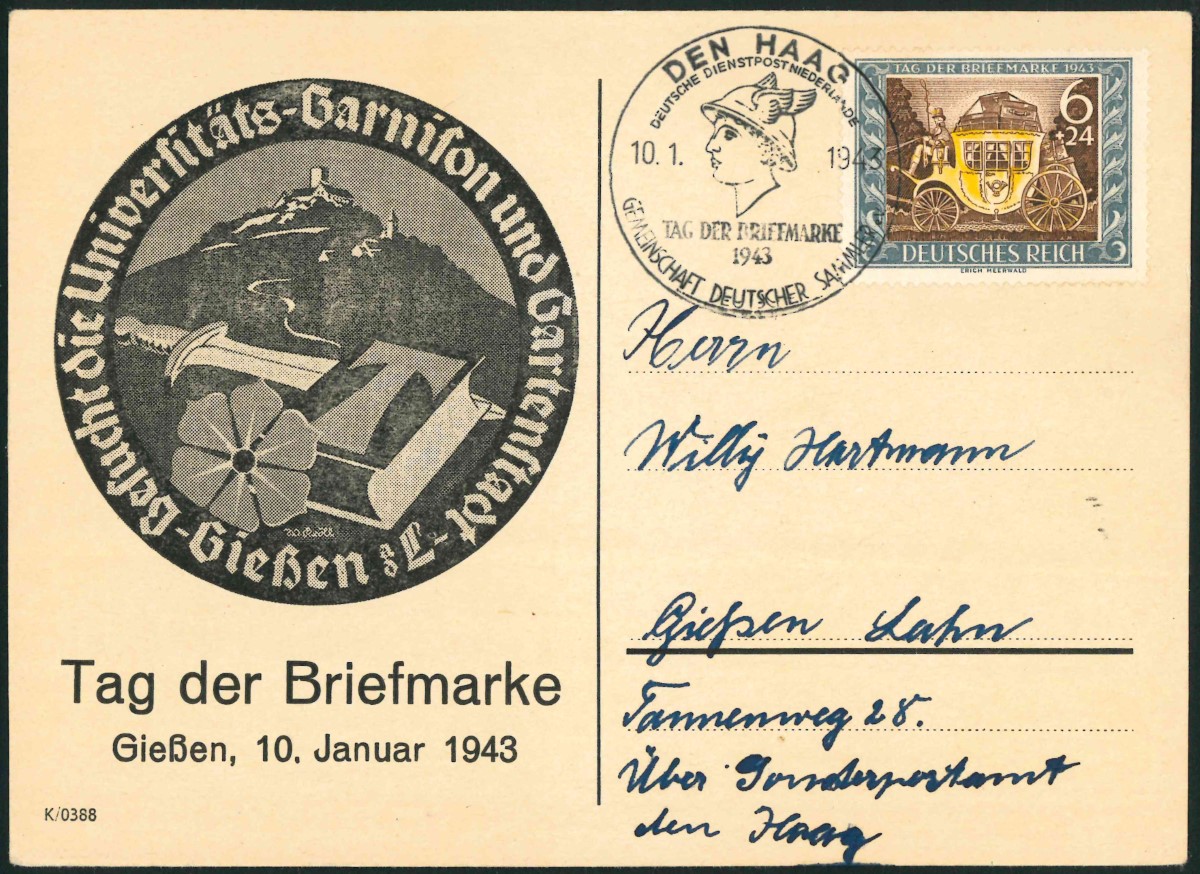 Besucht die Universitäts-Garnison und Gartenstadt - Gießen
W. Kröll
Tag der Briefmarke
Gießen, 10. Januar 1943
K/0388
DEN HAAG
DEUTSCHE DIENSTPOST NIEDERLANDE
10.1. 1943
TAG DER BRIEFMARKE
1943
GEMEINSCHAFT DEUTSCHER SAMMLER
TAG DER BRIEFMARKE 1943
6
+24
DEUTSCHES REICH
ERICH MEERWALD
Herrn
Willy Hartmann
Gießen Lahn
Tannenweg 28.
Über Sonderpostamt
den Haag